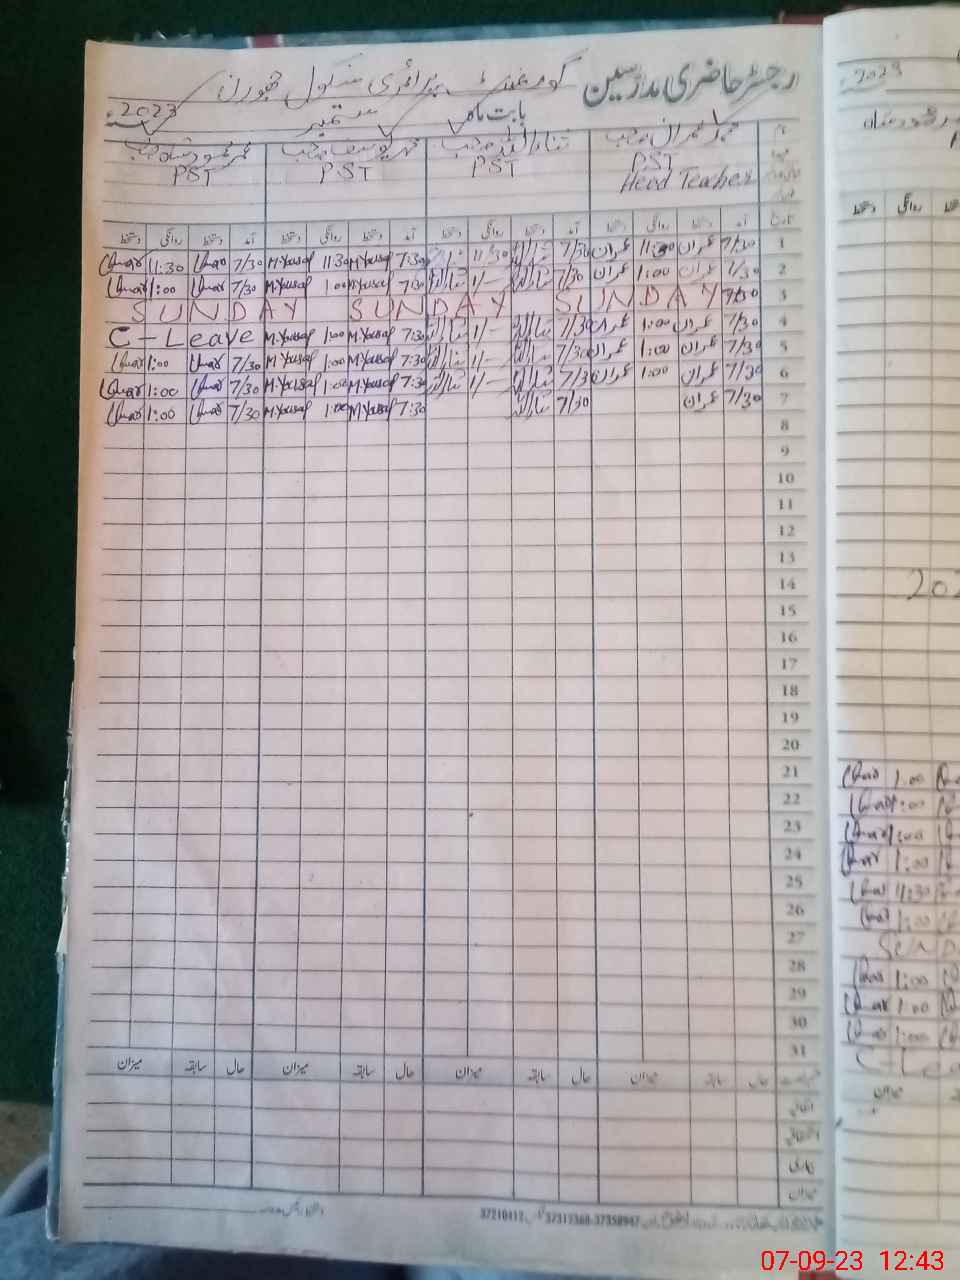 رجسٹر حاضری مدرسین گورنمنٹ پرائمری سکول
بابت ماہ ستمبر 2023ء
محمد عمران صاحب ثناء اللہ صاحب محمد یوسف صاحب عمر محمود شاہ صاحب
PST PST PST PST
Head Teacher
تاریخ آمد دستخط روانگی دستخط آمد دستخط روانگی دستخط آمد دستخط روانگی دستخط آمد دستخط روانگی دستخط
1 7/30 عمران 11:30 عمران 7/30 ثناء اللہ 11/30 7:30 M.Yousaf 11:30 M.Yousaf 7/30 Umar 11:30 Umar
2 7/30 عمران 1:00 عمران 7/30 ثناء اللہ 1/- ثناء اللہ 7:30 M.Yousaf 1:00 M.Yousaf 7/30 Umar 1:00 Umar
3 7/30 SUNDAY SUNDAY SUNDAY
4 7/30 عمران 1:00 عمران 7/30 ثناء اللہ 1/- ثناء اللہ 7:30 M.Yousaf 1:00 M.Yousaf C-Leave
5 7/30 عمران 1:00 عمران 7/30 ثناء اللہ 1/- ثناء اللہ 7:30 M.Yousaf 1:00 M.Yousaf 7/30 Umar 1:00 Umar
6 7/30 عمران 1:00 عمران 7/30 ثناء اللہ 1/- ثناء اللہ 7:30 M.Yousaf 1:00 M.Yousaf 7/30 Umar 1:00 Umar
7 7/30 عمران 7/30 ثناء اللہ 7:30 M.Yousaf 1:00 M.Yousaf 7/30 Umar 1:00 Umar
8
9
10
11
12
13
14
15
16
17
18
19
20
21
22
23
24
25
26
27
28
29
30
31
حال سابقہ میزان حال سابقہ میزان حال سابقہ میزان حال سابقہ میزان
اتفاقی
استحقاقی
بیماری
میزان
37210412 37312368-37358947
2023
روانگی دستخط
202
Umar 1:00
Umar 1:00
Umar 1:00
Umar 1:00
Umar 11:30
Umar 1:00
SUND
Umar 1:00
Umar 1:00
Umar 1:00
میزان
07-09-23 12:43